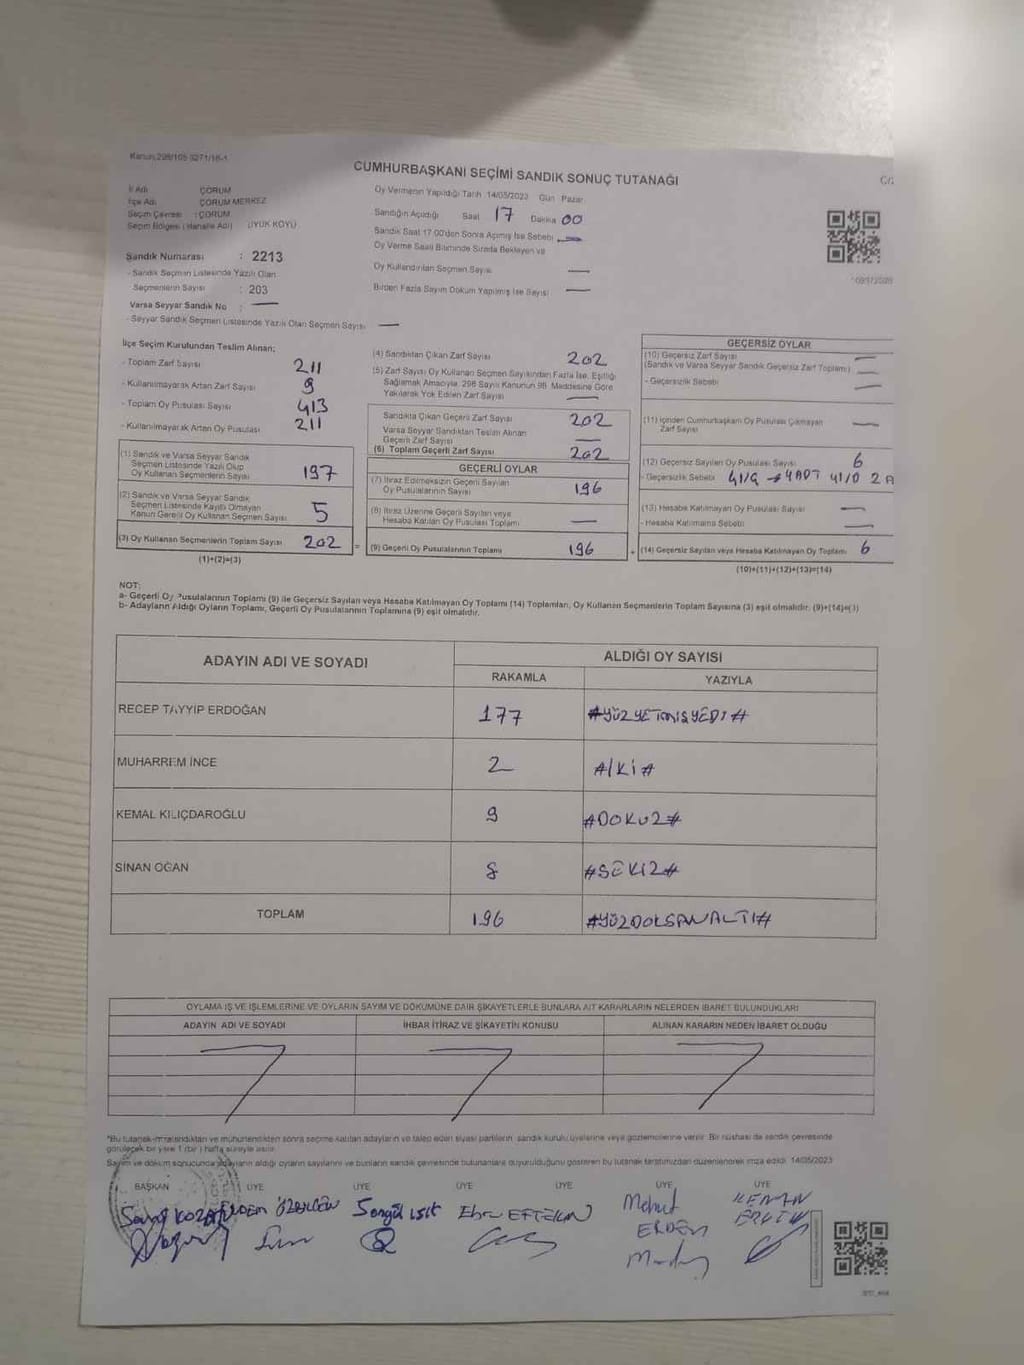 Kanun:298/105 5271/16-1
CUMHURBAŞKANI SEÇİMİ SANDIK SONUÇ TUTANAĞI
İl Adı ÇORUM
İlçe Adı ÇORUM MERKEZ
Seçim Çevresi : ÇORUM
Seçim Bölgesi (Mahalle Adı) (UYUK KÖYÜ)
Sandık Numarası : 2213
- Sandık Seçmen Listesinde Yazılı Olan
Seçmenlerin Sayısı : 203
Varsa Seyyar Sandık No : —
- Seyyar Sandık Seçmen Listesinde Yazılı Olan Seçmen Sayısı —
Oy Vermenin Yapıldığı Tarih 14/05/2023 Gün Pazar
Sandığın Açıldığı Saat 17 Dakika 00
Sandık Saat 17.00'den Sonra Açılmış İse Sebebi —
Oy Verme Saati Bitiminde Sırada Bekleyen ve
Oy Kullandırılan Seçmen Sayısı —
Birden Fazla Sayım Döküm Yapılmış İse Sayısı —
İlçe Seçim Kurulundan Teslim Alınan;
- Toplam Zarf Sayısı 211
- Kullanılmayarak Artan Zarf Sayısı 9
- Toplam Oy Pusulası Sayısı 413
- Kullanılmayarak Artan Oy Pusulası 211
(1) Sandık ve Varsa Seyyar Sandık
Seçmen Listesinde Yazılı Olup
Oy Kullanan Seçmenlerin Sayısı 197
(2) Sandık ve Varsa Seyyar Sandık
Seçmen Listesinde Kayıtlı Olmayan
Kanun Gereği Oy Kullanan Seçmen Sayısı 5
(3) Oy Kullanan Seçmenlerin Toplam Sayısı 202 =
(1)+(2)=(3)
(4) Sandıktan Çıkan Zarf Sayısı 202
(5) Zarf Sayısı Oy Kullanan Seçmen Sayısından Fazla İse, Eşitliği
Sağlamak Amacıyla, 298 Sayılı Kanunun 98. Maddesine Göre
Yakılarak Yok Edilen Zarf Sayısı —
Sandıkta Çıkan Geçerli Zarf Sayısı 202
Varsa Seyyar Sandıktan Teslim Alınan
Geçerli Zarf Sayısı —
(6) Toplam Geçerli Zarf Sayısı 202
GEÇERLİ OYLAR
(7) İtiraz Edilmeksizin Geçerli Sayılan
Oy Pusulalarının Sayısı 196
(8) İtiraz Üzerine Geçerli Sayılan veya
Hesaba Katılan Oy Pusulası Toplamı —
(9) Geçerli Oy Pusulalarının Toplamı 196 +
GEÇERSİZ OYLAR
(10) Geçersiz Zarf Sayısı —
(Sandık ve Varsa Seyyar Sandık Geçersiz Zarf Toplamı) —
- Geçersizlik Sebebi —
(11) İçinden Cumhurbaşkanı Oy Pusulası Çıkmayan
Zarf Sayısı —
(12) Geçersiz Sayılan Oy Pusulası Sayısı 6
- Geçersizlik Sebebi 41/G → 4 ADT 41/D 2 A
(13) Hesaba Katılmayan Oy Pusulası Sayısı —
- Hesaba Katılmama Sebebi —
(14) Geçersiz Sayılan veya Hesaba Katılmayan Oy Toplamı 6
(10)+(11)+(12)+(13)=(14)
NOT:
a- Geçerli Oy Pusulalarının Toplamı (9) ile Geçersiz Sayılan veya Hesaba Katılmayan Oy Toplamı (14) Toplamları, Oy Kullanan Seçmenlerin Toplam Sayısına (3) eşit olmalıdır. (9)+(14)=(3)
b- Adayların Aldığı Oyların Toplamı, Geçerli Oy Pusulalarının Toplamına (9) eşit olmalıdır.
ADAYIN ADI VE SOYADI ALDIĞI OY SAYISI
RAKAMLA YAZIYLA
RECEP TAYYİP ERDOĞAN 177 #YÜZYETMİŞYEDİ#
MUHARREM İNCE 2 #İKİ#
KEMAL KILIÇDAROĞLU 9 #DOKUZ#
SİNAN OĞAN 8 #SEKİZ#
TOPLAM 196 #YÜZDOKSANALTI#
OYLAMA İŞ VE İŞLEMLERİNE VE OYLARIN SAYIM VE DÖKÜMÜNE DAİR ŞİKAYETLERLE BUNLARA AİT KARARLARIN NELERDEN İBARET BULUNDUKLARI
ADAYIN ADI VE SOYADI İHBAR İTİRAZ VE ŞİKAYETİN KONUSU ALINAN KARARIN NEDEN İBARET OLDUĞU
*Bu tutanak imzalandıktan ve mühürlendikten sonra seçime katılan adayların ve talep eden siyasi partilerin sandık kurulu üyelerine veya gözlemcilerine verilir. Bir nüshası da sandık çevresinde
görülecek bir yere 1 (bir) hafta süreyle asılır.
Sayım ve döküm sonucunda adayların aldığı oyların sayılarını ve bunların sandık çevresinde bulunanlara duyurulduğunu gösteren bu tutanak tarafımızdan düzenlenerek imza edildi. 14/05/2023
BAŞKAN ÜYE ÜYE ÜYE ÜYE ÜYE ÜYE
Şengül IŞIK Ebru EFTEKIN Mehmet
ERDEN
KENAN